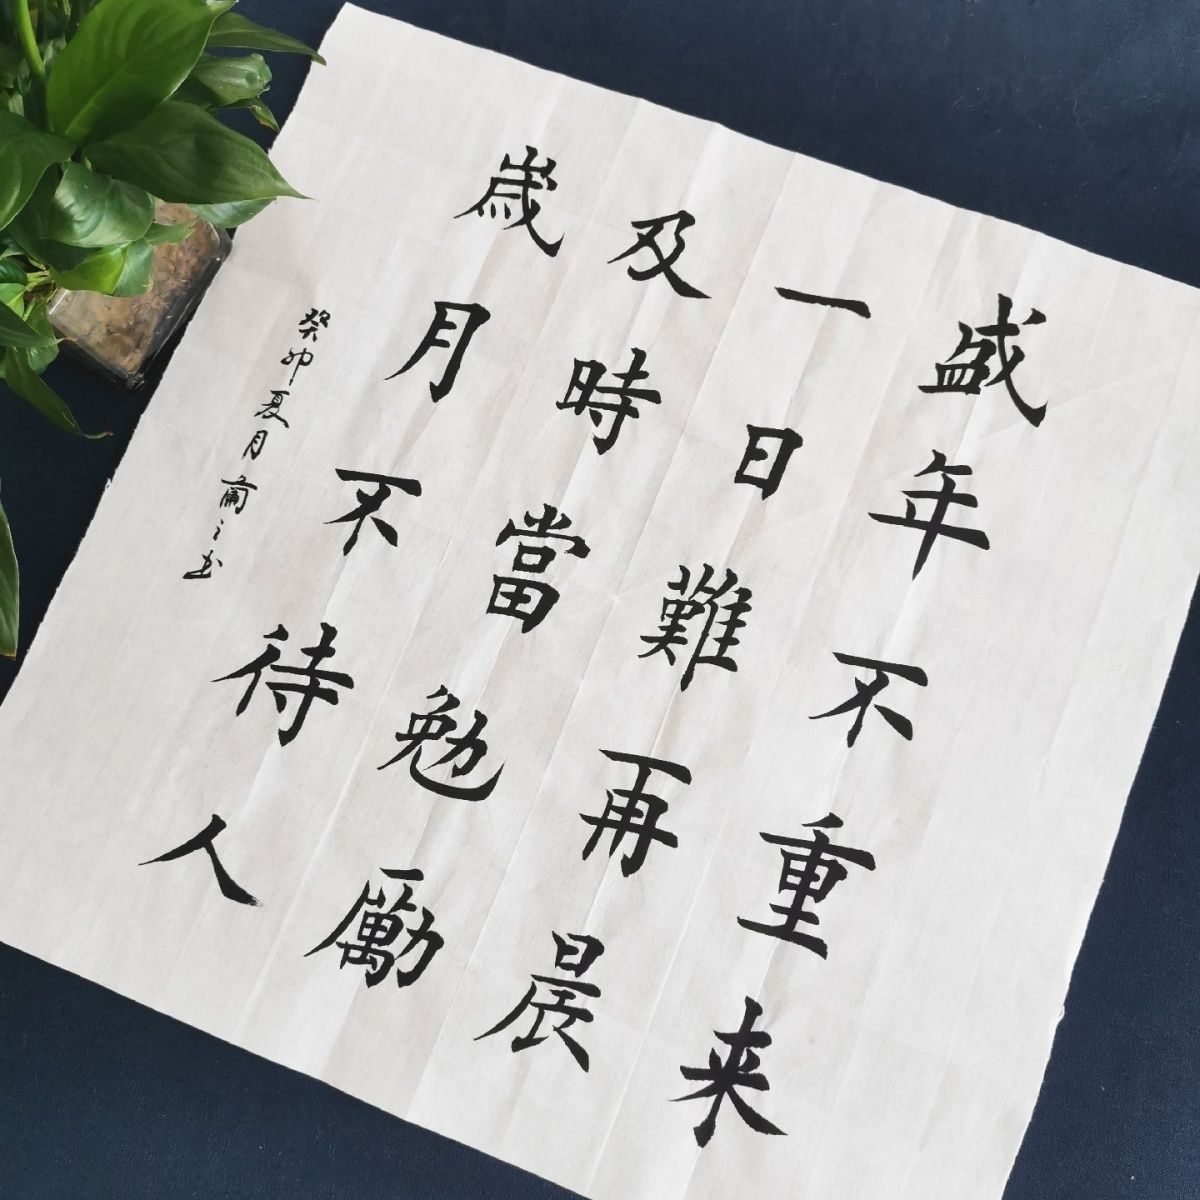 盛年不重来
一日難再晨
及時當勉勵
歲月不待人
癸卯夏月蘭之书